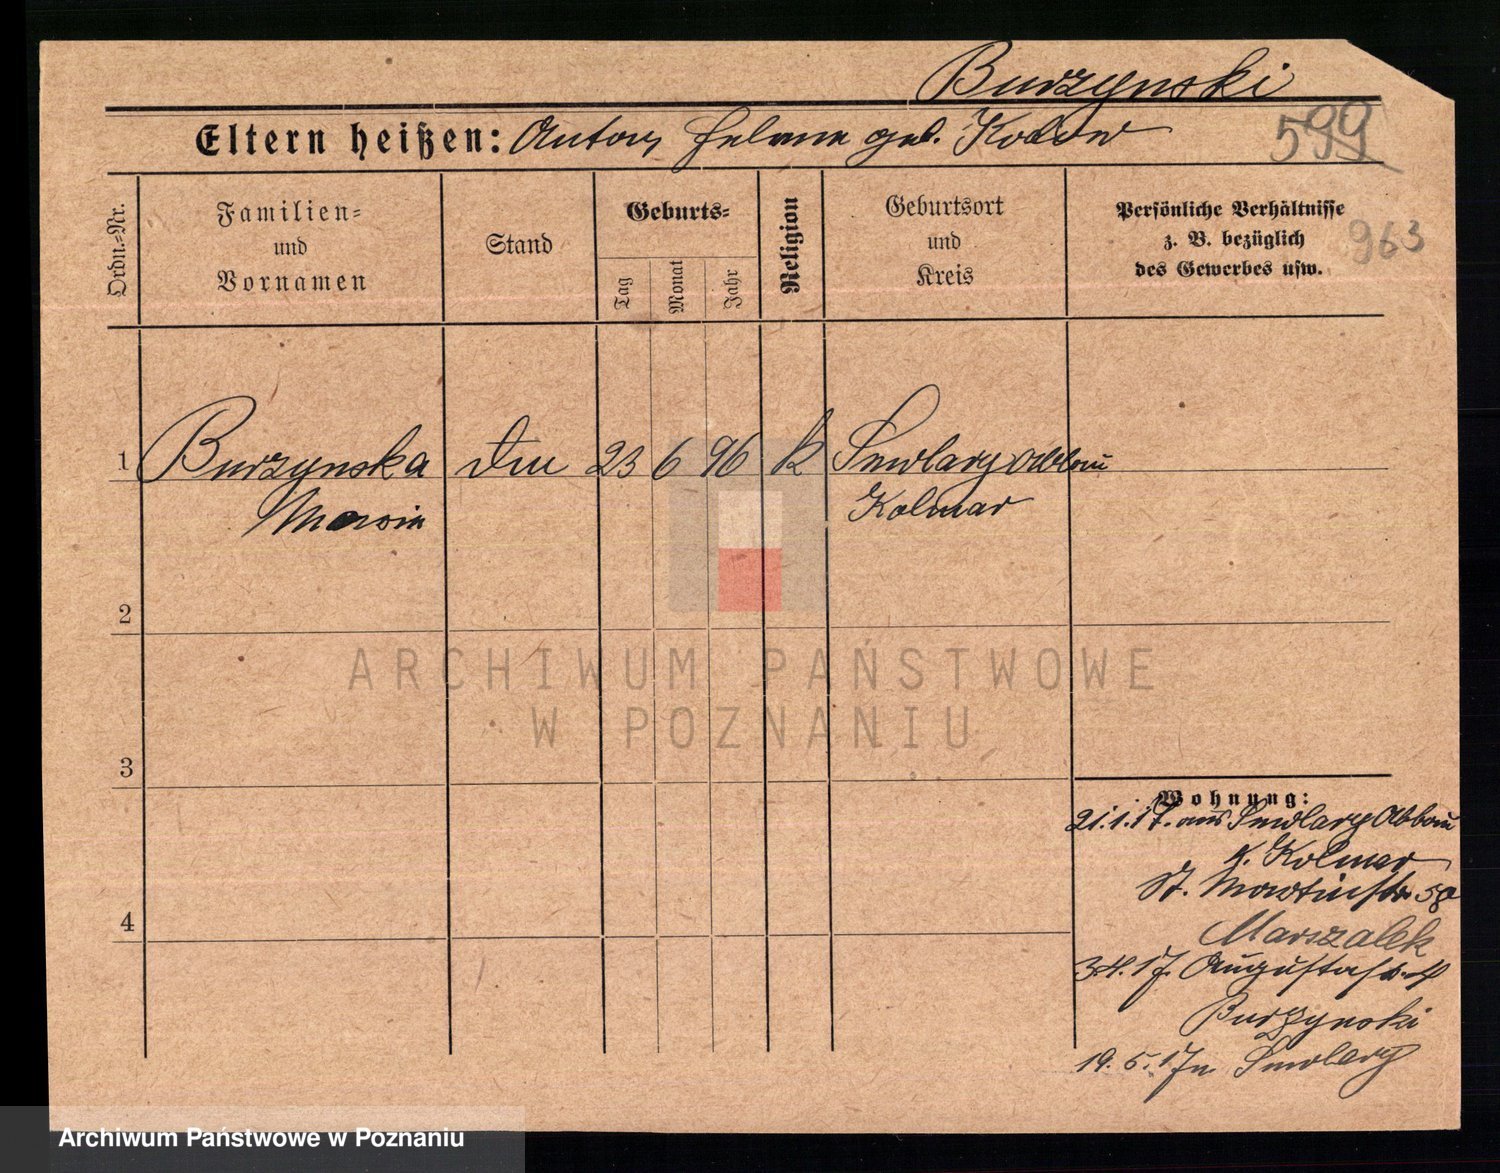 Burzynski
Eltern heißen: Anton, Helena geb. 599
Ordn.-Nr.
Familien-
und
Vornamen
Stand
Geburts-
Tag
Monat
Jahr
Religion
Geburtsort
und
Kreis
Persönliche Verhältnisse
z. B. bezüglich
des Gewerbes usw.
963
1 Burzynska 23 6 96 k Smolary Abbau
Kolmar
2
3
4
Wohnung:
21.1.17. aus Smolary Abbau
K. Kolmar
St. Martinstr.
Marszalek
3.4.17. Augustastr. 4
Burzynski
19.5.17 n. Smolary
ARCHIWUM PAŃSTWOWE
W POZNANIU
Archiwum Państwowe w Poznaniu